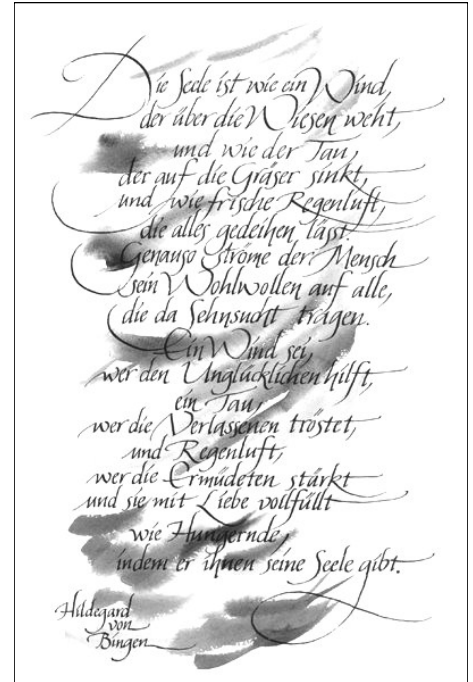 Die Seele ist wie ein Wind,
der über die Wiesen weht,
und wie der Tau,
der auf die Gräser sinkt,
und wie frische Regenluft,
die alles gedeihen lässt.
Genauso ströme der Mensch
sein Wohlwollen auf alle,
die da Sehnsucht tragen.
Ein Wind sei,
wer den Unglücklichen hilft,
ein Tau,
wer die Verlassenen tröstet,
und Regenluft,
wer die Ermüdeten stärkt
und sie mit Liebe vollfüllt
wie Hungernde,
indem er ihnen seine Seele gibt.
Hildegard
von
Bingen